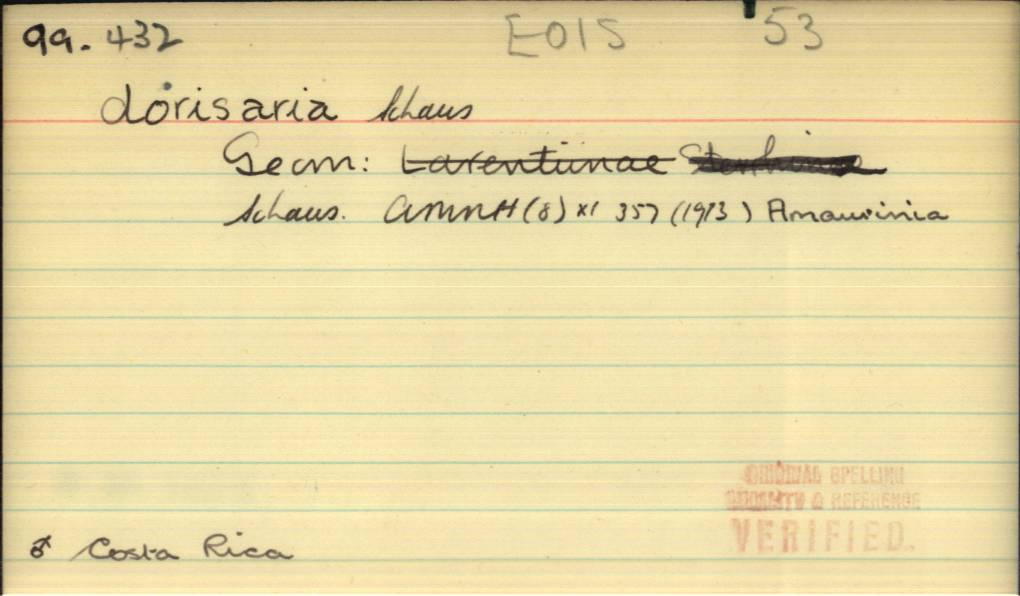 99. 432 EOIS 53
dorisaria Schaus
Geom: Larentiinae Sterrhinae
Schaus. AMNH (8) XI 357 (1913) Amaurinia
ORIGINAL SPELLING
LOCALITY & REFERENCE
VERIFIED.
♂ Costa Rica